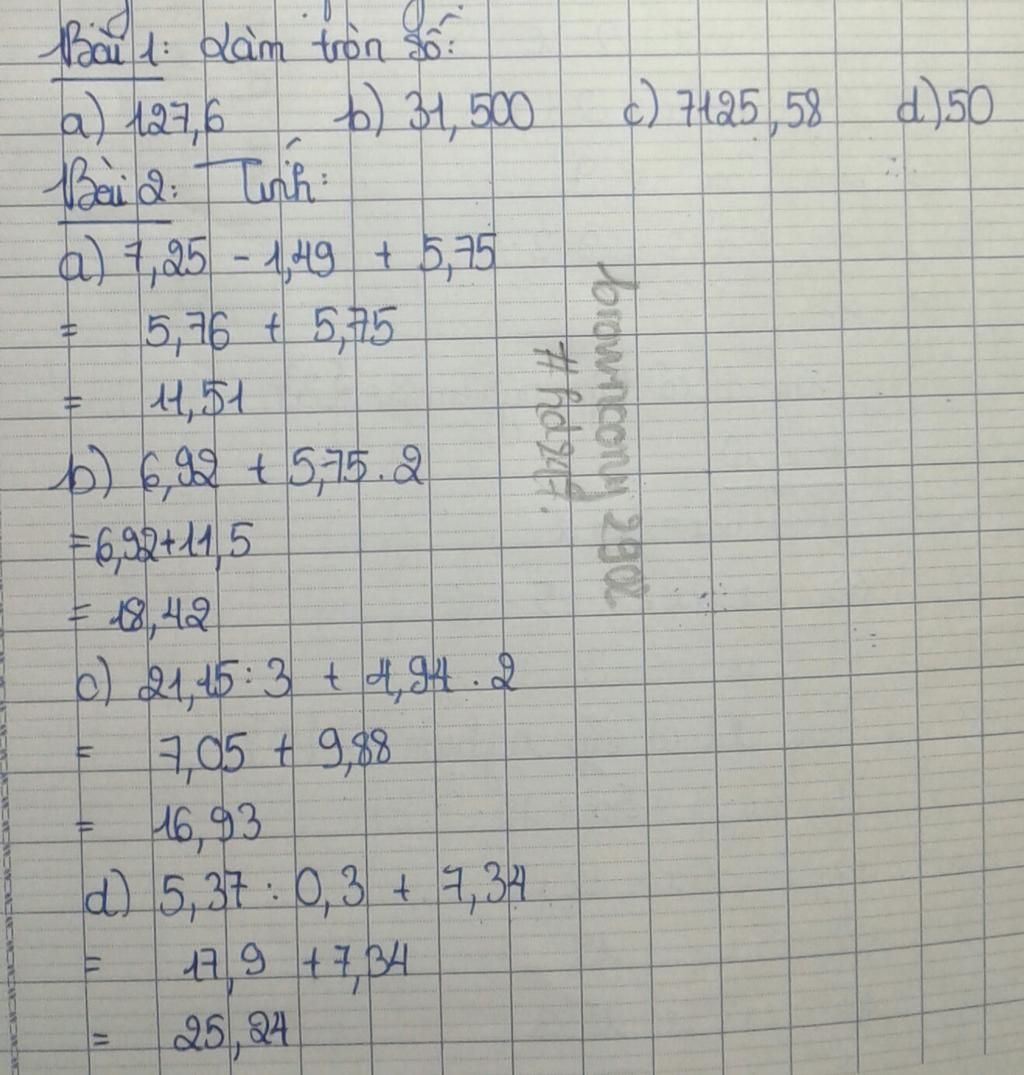 Bài 1: Làm tròn số:
a) 127,6 b) 31,500 c) 7125,58 d) 50
Bài 2: Tính:
a) 7,25 - 1,49 + 5,75
= 5,76 + 5,75
= 11,51
b) 6,92 + 5,75 . 2
= 6,92 + 11,5
= 18,42
c) 21,15 : 3 + 4,94 . 2
= 7,05 + 9,88
= 16,93
d) 5,37 : 0,3 + 7,34
= 17,9 + 7,34
= 25,24
# hd247.